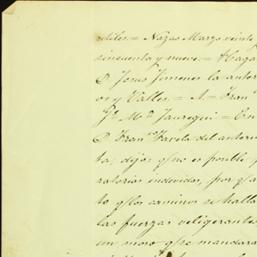 ediles.= Nazas Marzo veinte
cincuenta y nueve.= Haga
D. Jesus Jimenes la autor
or y Valles.= A.= Fran
Jº Mª Jauregui = En
D. Franco Farela del autor
ta, dijo: que es posible y
ratorios indevidos, por qa
to qe los caminos se halla
las fuerzas veligerantes
un moso qe mandara